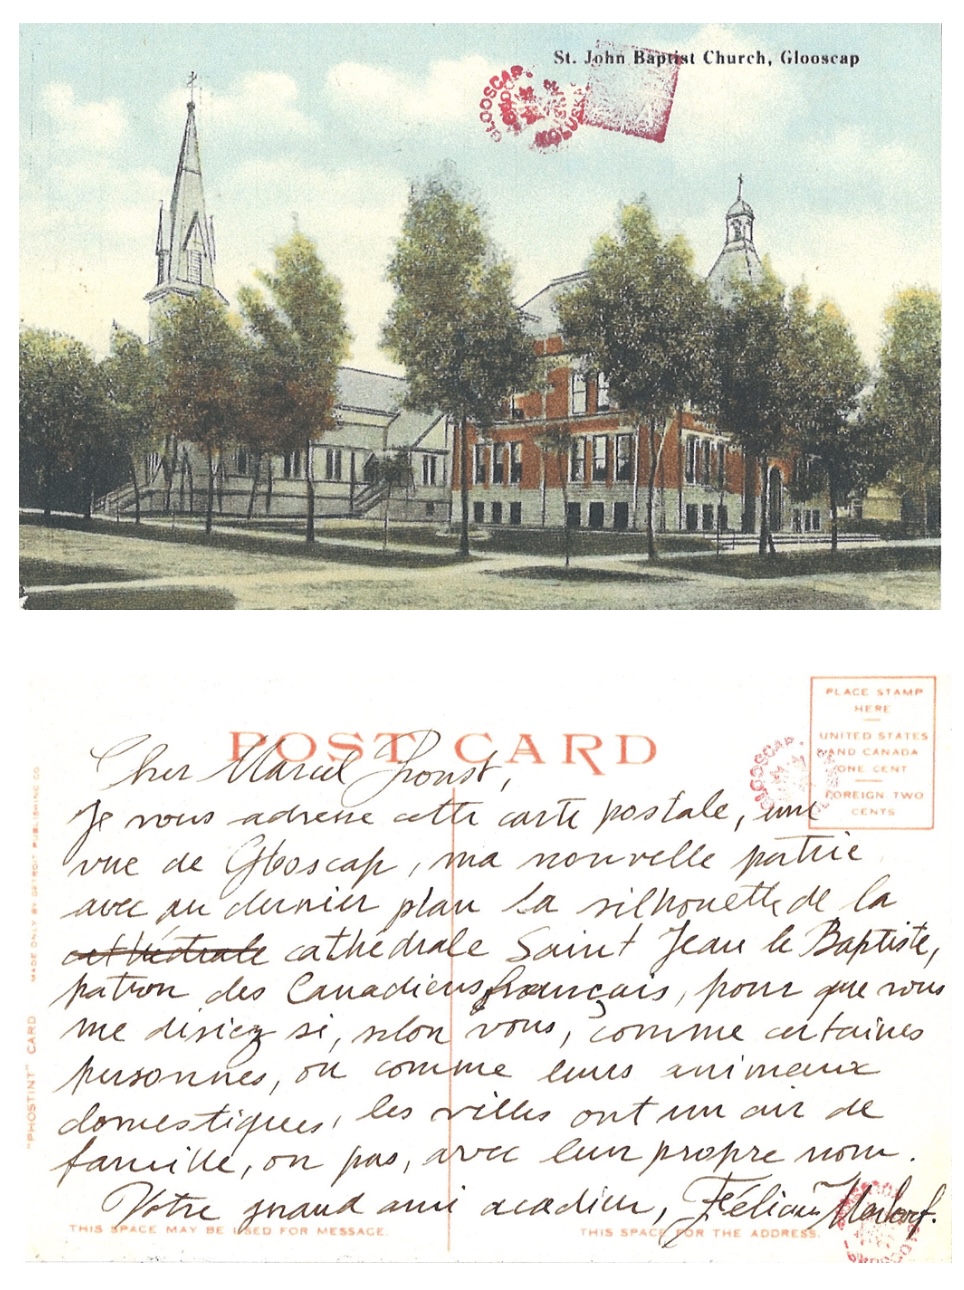 St. John Baptist Church, Glooscap
GLOOSCAP
POST CARD
PLACE STAMP
HERE
UNITED STATES
AND CANADA
ONE CENT
FOREIGN TWO
CENTS
GLOOSCAP
Cher Marcel Proust,
Je vous adresse cette carte postale, une
vue de Glooscap, ma nouvelle patrie
avec au dernier plan la silhouette de la
cathédrale cathédrale Saint Jean le Baptiste,
patron des Canadiens français, pour que vous
me disiez si, selon vous, comme certaines
personnes, ou comme leurs animaux
domestiques, les villes ont un air de
famille, ou pas, avec leur propre nom.
Votre grand ami acadien, Félicien Marbœuf.
THIS SPACE MAY BE USED FOR MESSAGE.
THIS SPACE FOR THE ADDRESS.
"PHOSTINT" CARD
MADE ONLY BY DETROIT PUBLISHING CO.